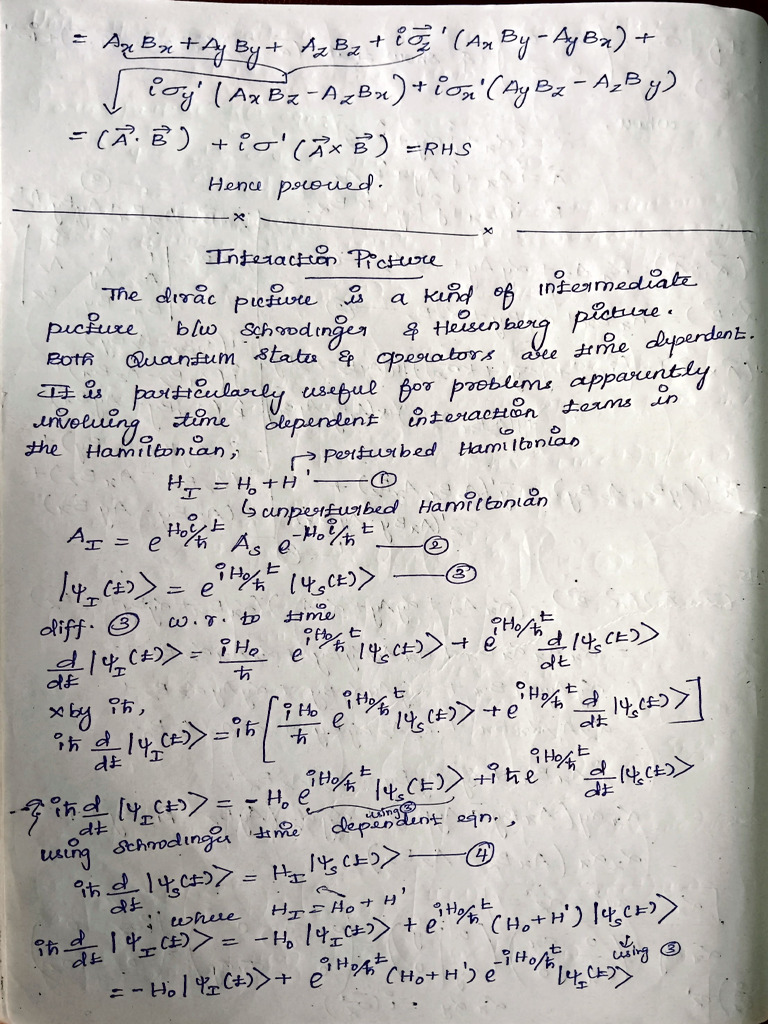 = AₓBₓ + A_y B_y + A_z B_z + i σ⃗_z' (Aₓ B_y − A_y Bₓ) +
i σ_y' (Aₓ B_z − A_z Bₓ) + i σₓ' (A_y B_z − A_z B_y)
= (A⃗ · B⃗) + i σ' (A⃗ × B⃗) = RHS
Hence proved.
Interaction Picture
The dirac picture is a kind of intermediate
picture b/w Schrodinger & Heisenberg picture.
Both Quantum state & operators are time dependent.
It is particularly useful for problems apparently
involving time dependent interaction terms in
the Hamiltonian,
↱ Perturbed Hamiltonian
H_I = H₀ + H' —— ①
↳ unperturbed Hamiltonian
A_I = e^{H₀ i/ħ t} A_S e^{−H₀ i/ħ t} —— ②
|ψ_I(t)⟩ = e^{iH₀/ħ t} |ψ_S(t)⟩ —— ③
diff. ③ w.r. to time
d/dt |ψ_I(t)⟩ = iH₀/ħ e^{iH₀/ħ t} |ψ_S(t)⟩ + e^{iH₀/ħ t} d/dt |ψ_S(t)⟩
× by iħ,
iħ d/dt |ψ_I(t)⟩ = iħ [ iH₀/ħ e^{iH₀/ħ t} |ψ_S(t)⟩ + e^{iH₀/ħ t} d/dt |ψ_S(t)⟩ ]
iħ d/dt |ψ_I(t)⟩ = − H₀ e^{iH₀/ħ t} |ψ_S(t)⟩ + iħ e^{iH₀/ħ t} d/dt |ψ_S(t)⟩
using ③
using Schrodinger time dependent eqn.,
iħ d/dt |ψ_S(t)⟩ = H_I |ψ_S(t)⟩ —— ④
∵ where H_I = H₀ + H'
iħ d/dt |ψ_I(t)⟩ = −H₀ |ψ_I(t)⟩ + e^{iH₀/ħ t} (H₀ + H') |ψ_S(t)⟩
↓ using ③
= − H₀ |ψ_I(t)⟩ + e^{iH₀/ħ t} (H₀ + H') e^{−iH₀/ħ t} |ψ_I(t)⟩